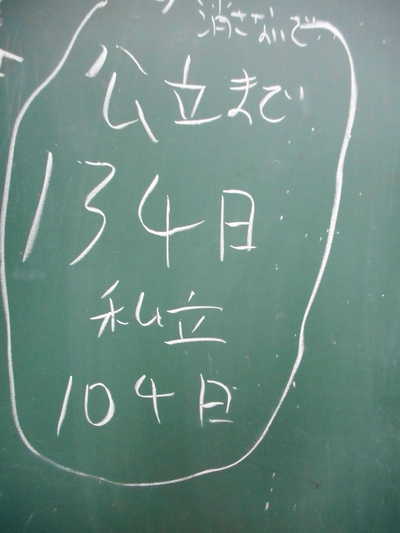 消さないで
公立まで
134日
私立
104日